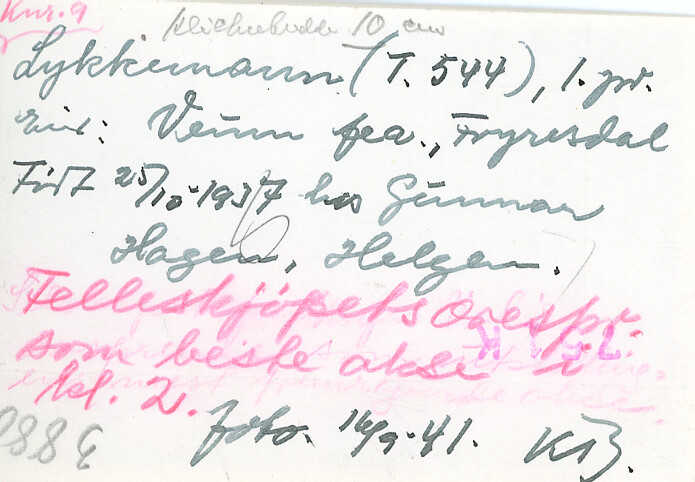 Kur. 9
Klichebredde 10 cm
Lykkemann (T. 544), 1. pr.
Eier: Veum fea., Fyresdal
Født 25/10-1937 hos Gunnar
Hagen, Helgen.
Felleskjøpets ærespr.
som beste okse i
kl. 2.
foto. 16/9-41. KB.